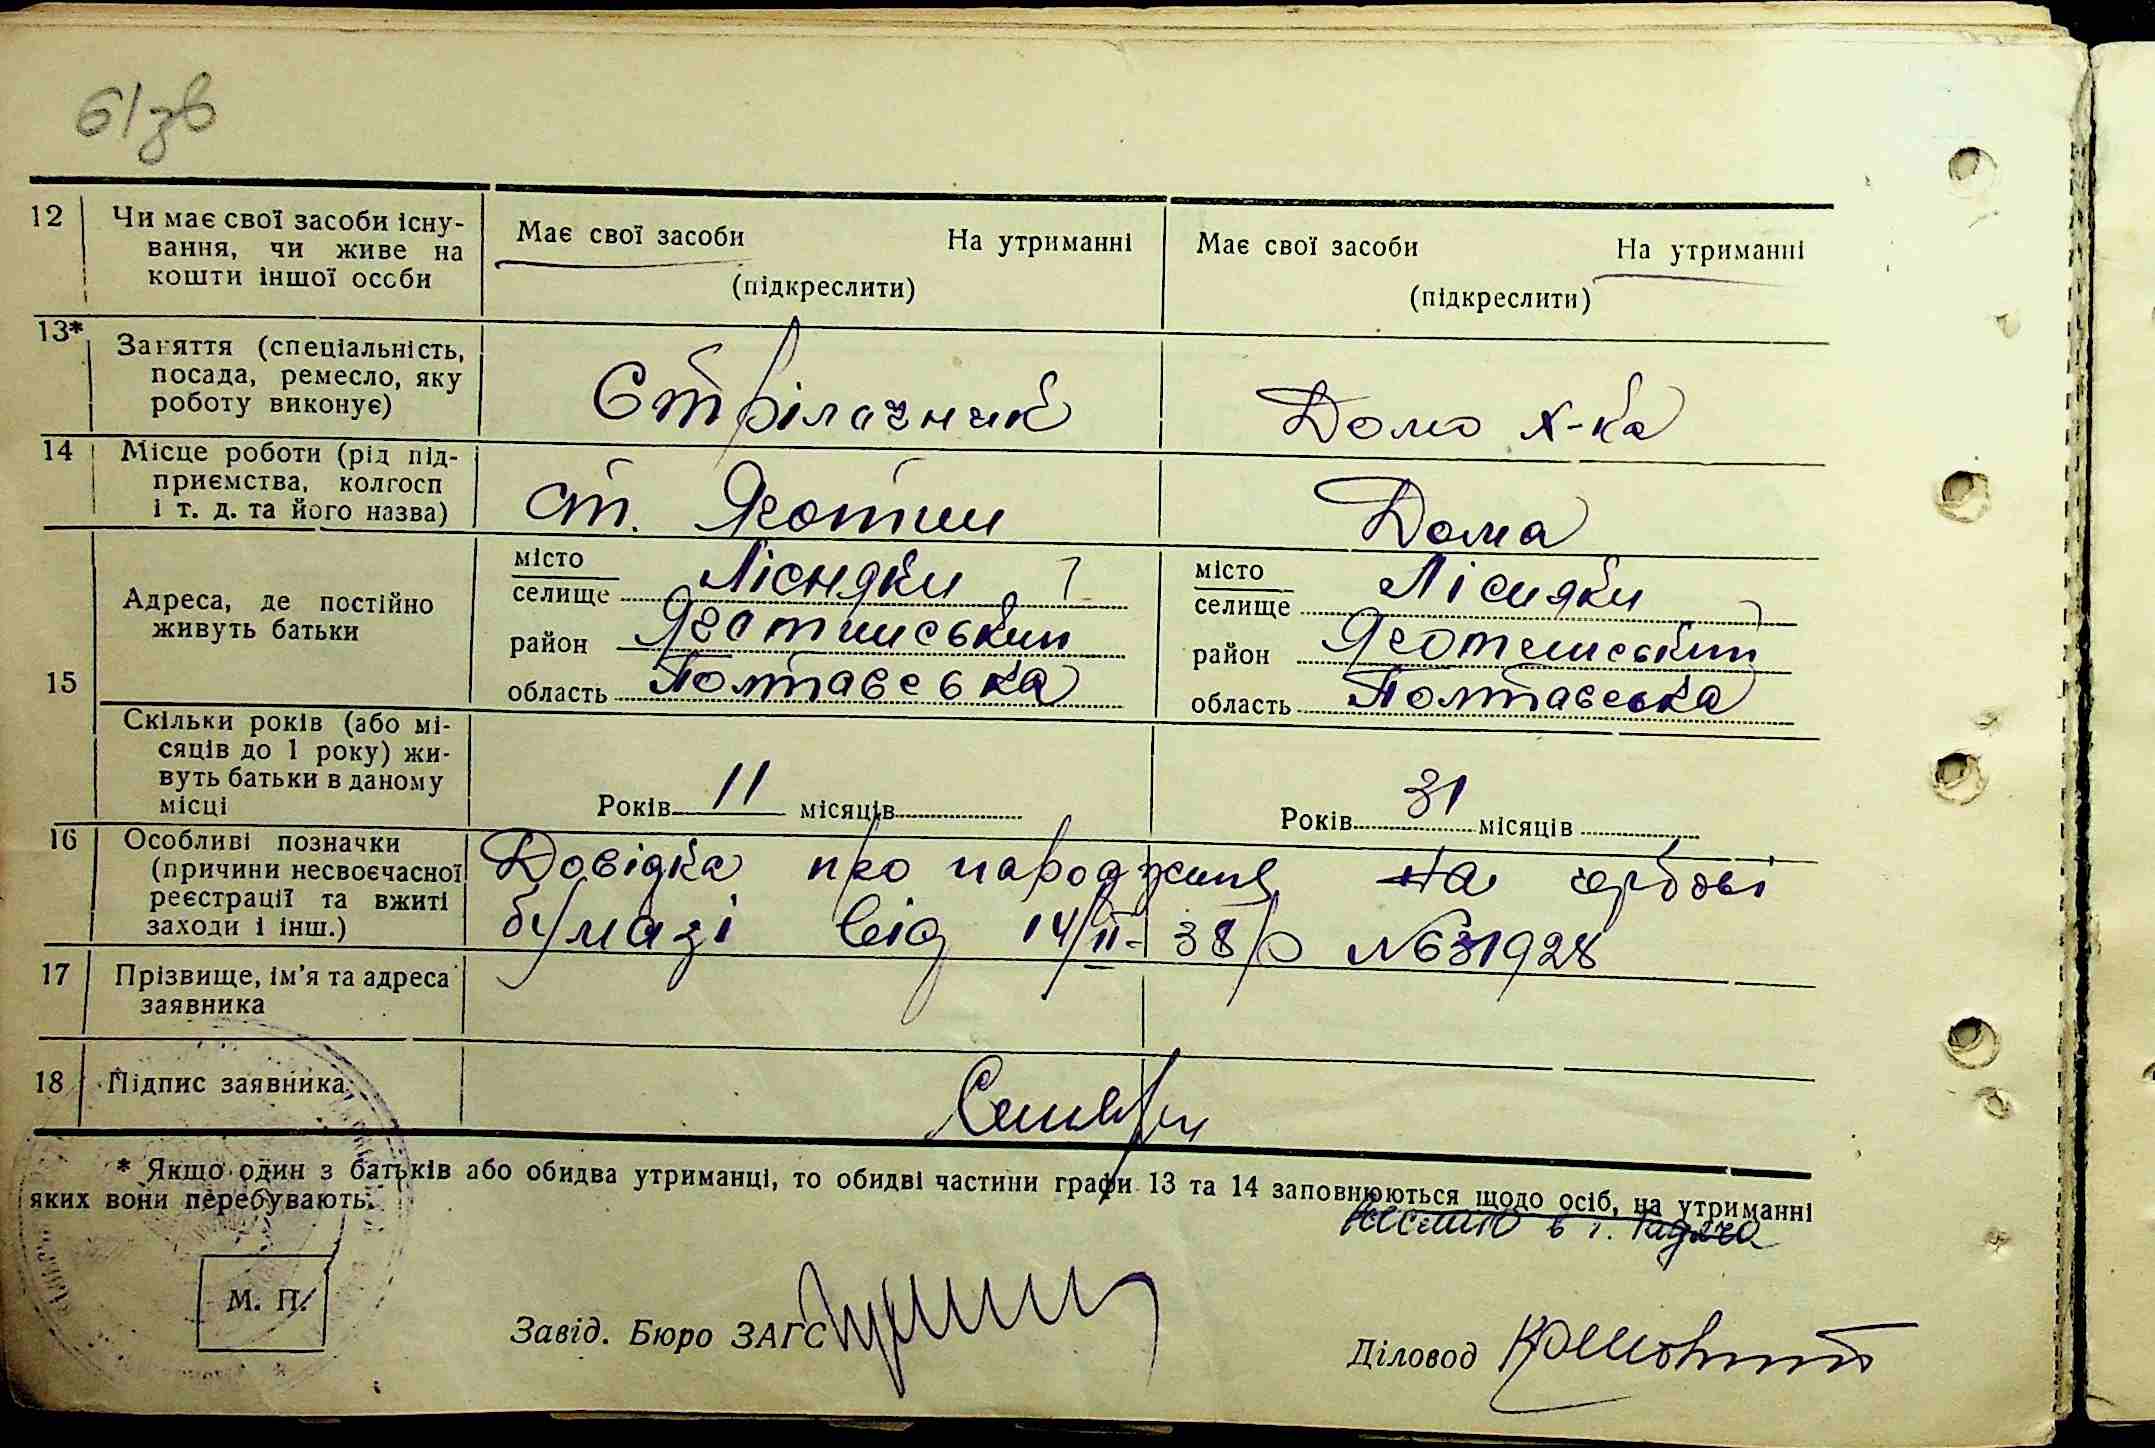 61зв
12 Чи має свої засоби існу-
вання, чи живе на
кошти іншої особи
Має свої засоби На утриманні
(підкреслити)
Має свої засоби На утриманні
(підкреслити)
13* Заняття (спеціальність,
посада, ремесло, яку
роботу виконує)
Стрілочник
Домо х-ка
14 Місце роботи (рід під-
приємства, колгосп
і т. д. та його назва)
ст. Яготин
Дома
15 Адреса, де постійно
живуть батьки
місто
селище Лісняки
район Яготинський
область Полтавська
місто
селище Лісняки
район Яготинський
область Полтавська
Скільки років (або мі-
сяців до 1 року) жи-
вуть батьки в даному
місці
Років 11 місяців
Років 31 місяців
16 Особливі позначки
(причини несвоєчасної
реєстрації та вжиті
заходи і інш.)
Довідка про народження на гербові
бумазі від 14/II-38/р №631928
17 Прізвище, ім'я та адреса
заявника
18 Підпис заявника
* Якщо один з батьків або обидва утриманці, то обидві частини графи 13 та 14 заповнюються щодо осіб, на утриманні
яких вони перебувають.
в г.
М. П.
Завід. Бюро ЗАГС
Діловод